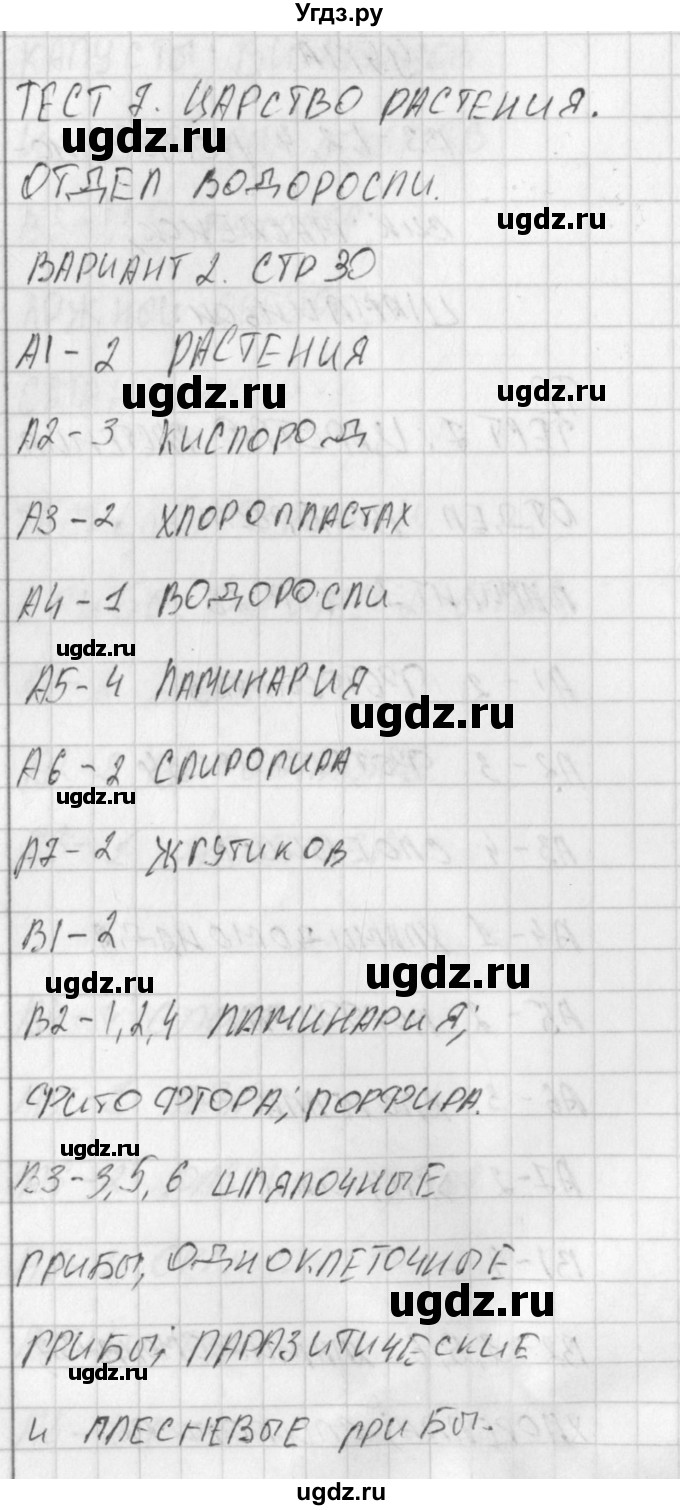 Угдз.ру
ТЕСТ 7. ЦАРСТВО РАСТЕНИЯ.
ugdz.ru
ОТДЕЛ ВОДОРОСЛИ.
ugdz.ru
ВАРИАНТ 2. СТР 30
А1 - 2 РАСТЕНИЯ
ugdz.ru ugdz.ru
А2 - 3 КИСЛОРОД
А3 - 2 ХЛОРОПЛАСТАХ
А4 - 1 ВОДОРОСЛИ
ugdz.ru
А5 - 4 ЛАМИНАРИЯ
ugdz.ru
А6 - 2 СПИРОГИРА
ugdz.ru
А7 - 2 ЖГУТИКОВ
В1 - 2
ugdz.ru ugdz.ru
В2 - 1, 2, 4 ЛАМИНАРИЯ;
ФИТОФТОРА; ПОРФИРА.
ugdz.ru
В3 - 3, 5, 6 ШЛЯПОЧНЫЕ
ГРИБЫ, ОДНОКЛЕТОЧНЫЕ
ugdz.ru
ГРИБЫ; ПАРАЗИТИЧЕСКИЕ
ugdz.ru
И ПЛЕСНЕВЫЕ ГРИБЫ.
ugdz.ru